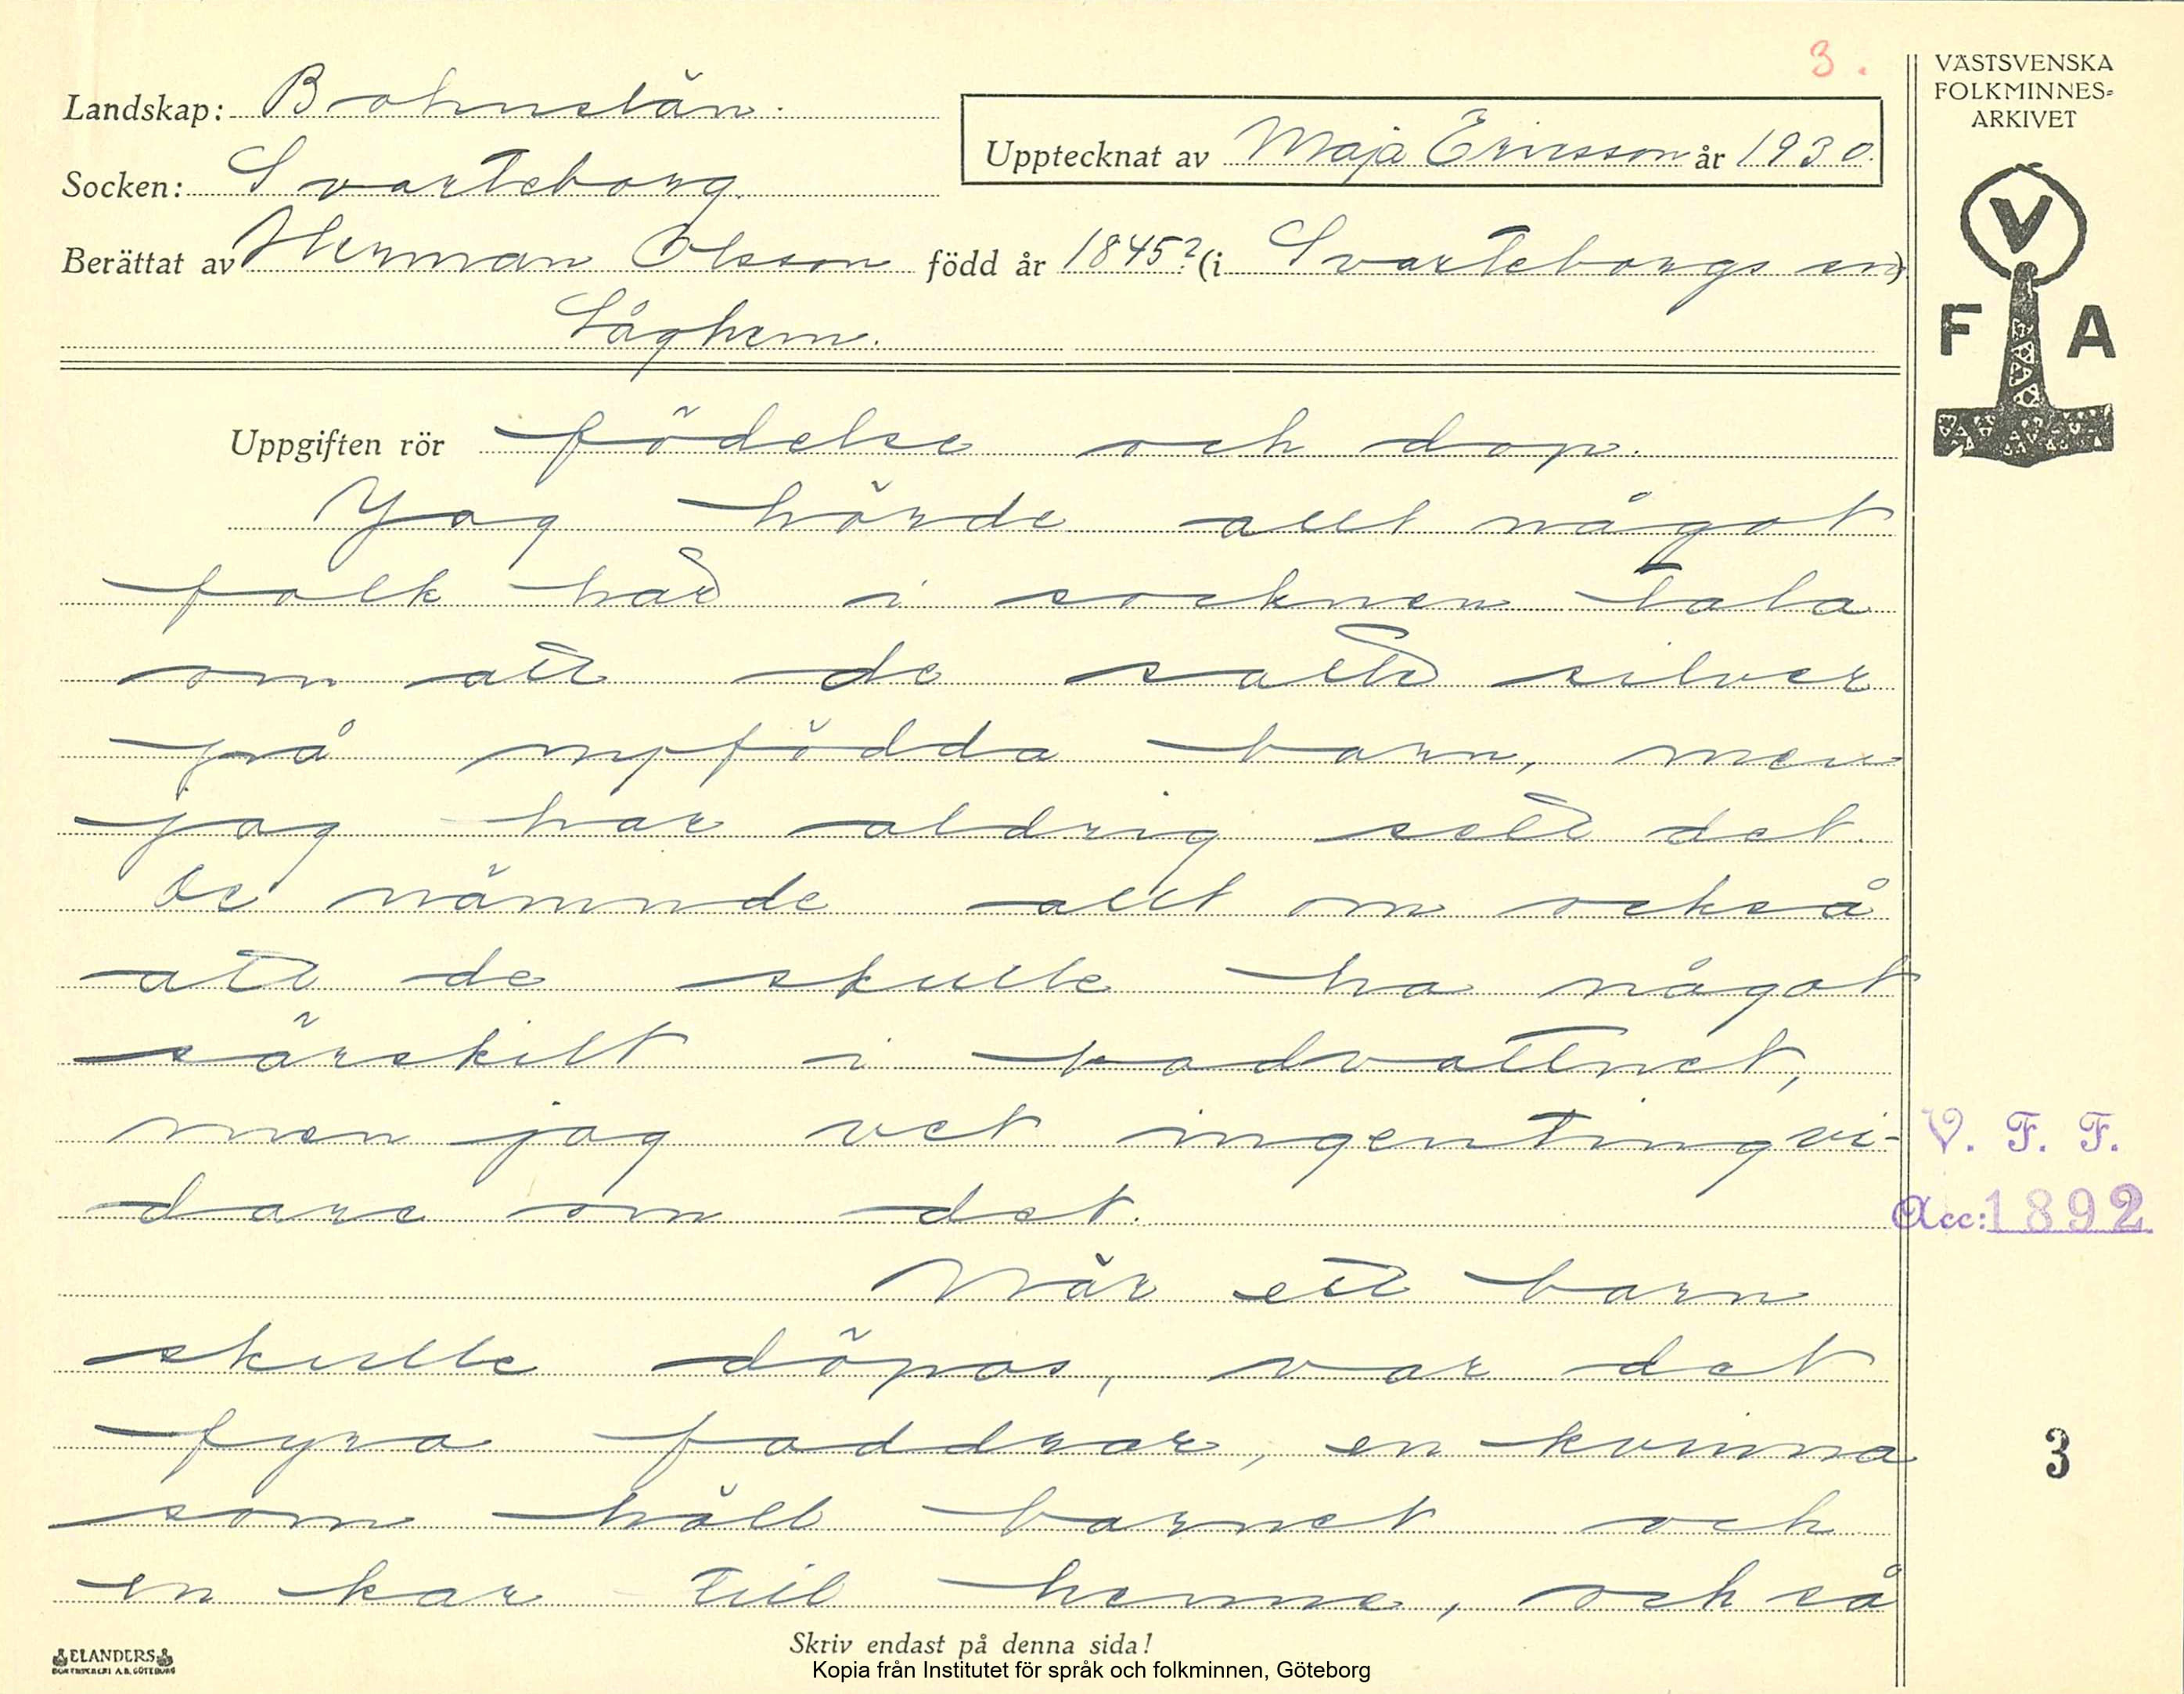 3.
VÄSTSVENSKA
FOLKMINNES-
ARKIVET
Landskap: Bohuslän.
Upptecknat av Maja Ericsson år 1930.
Socken: Svarteborg.
Berättat av Herman Olsson född år 1845? (i Svarteborgs sn)
Låghem.
V
F A
Uppgiften rör födelse och dop.
Jag hörde allt något
folk här i socknen tala
om att de satte silver
på nyfödda barn, men
jag har aldrig sett det.
De nämnde allt om också
att de skulle ha något
särskilt i badvattnet,
men jag vet ingenting vi-
V. F. F.
dare om det.
Acc: 1892
När ett barn
skulle döpas, var det
fyra faddrar, en kvinna
3
som höll barnet och
en kar till henne, och så
Skriv endast på denna sida!
ELANDERS
BOKTRYCKERI A.B. GÖTEBORG
Kopia från Institutet för språk och folkminnen, Göteborg